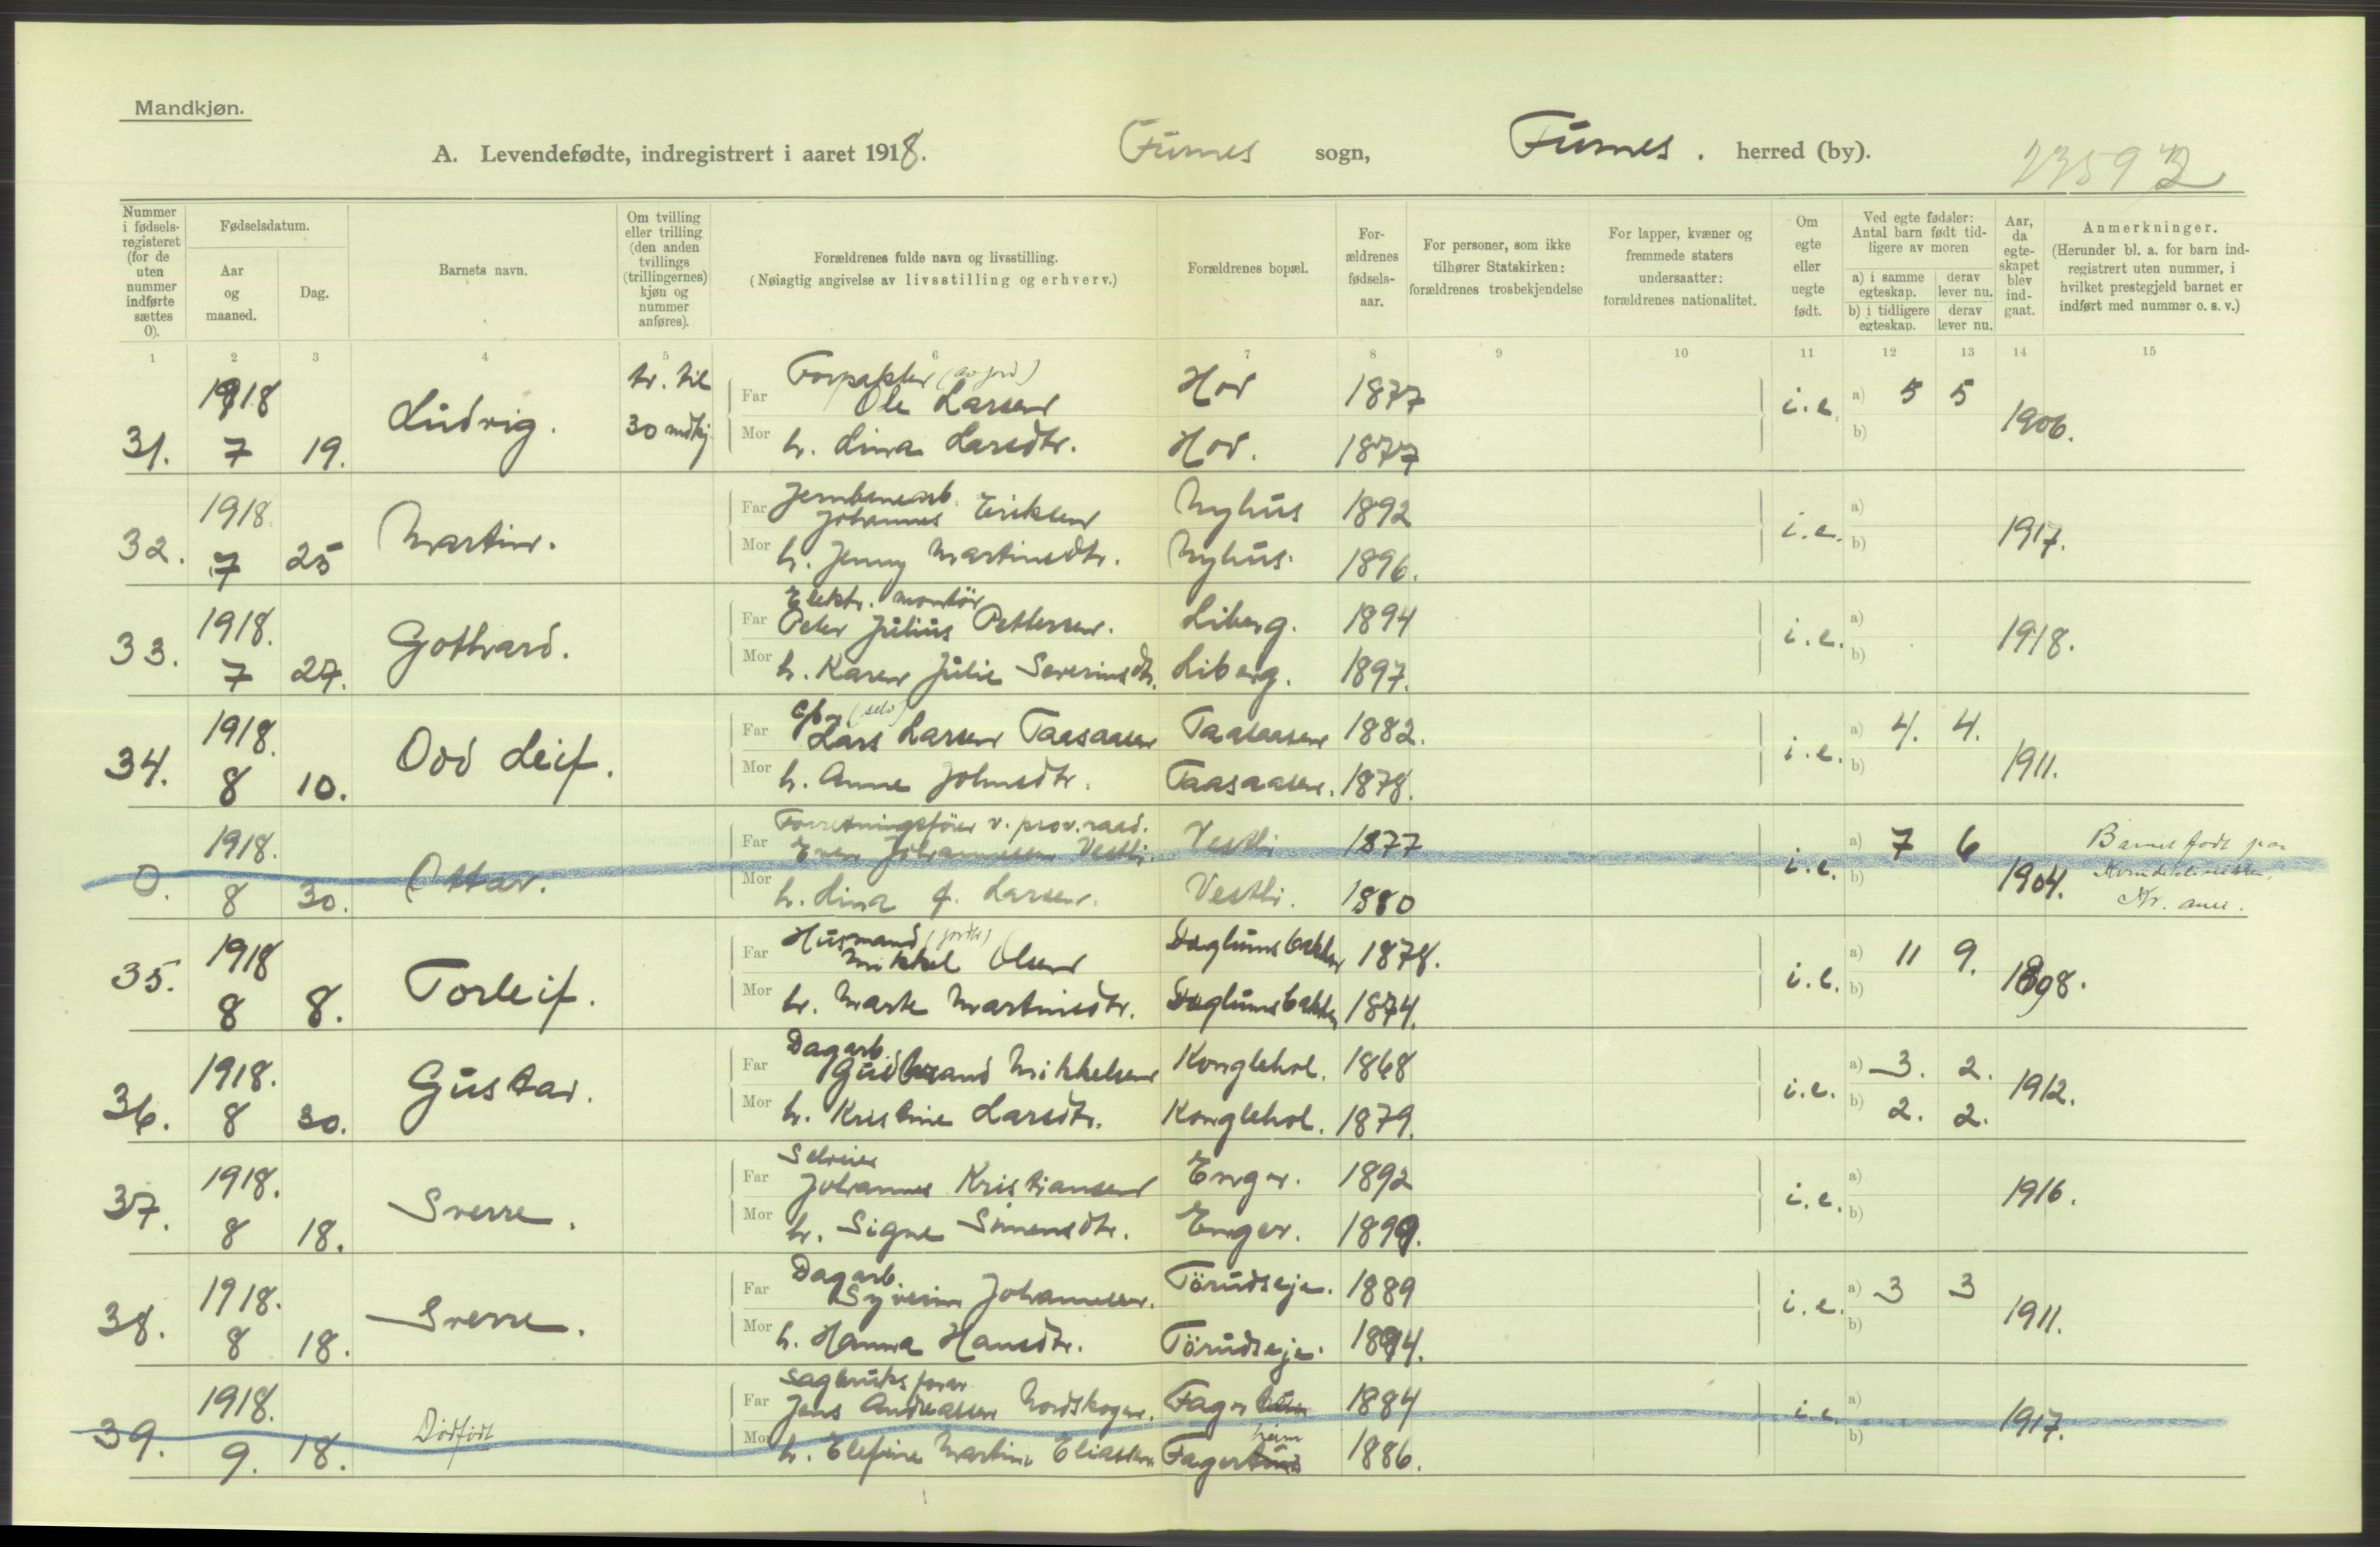 Mandkjøn.
A. Levendefødte, indregistrert i aaret 1918. Furnes sogn, Furnes. herred (by).
Nummer i fødselsregisteret (for de uten nummer indførte sættes 0).
Fødselsdatum.
Aar og maaned.
Dag.
Barnets navn.
Om tvilling eller trilling (den anden tvillings (trillingernes) kjøn og nummer anføres).
Forældrenes fulde navn og livsstilling.
(Nøiagtig angivelse av livsstilling og erhverv.)
Forældrenes bopæl.
Forældrenes fødselsaar.
For personer, som ikke tilhører Statskirken: forældrenes trosbekjendelse
For lapper, kvæner og fremmede staters undersaatter: forældrenes nationalitet.
Om egte eller uegte født.
Ved egte fødsler: Antal barn født tidligere av moren
a) i samme egteskap. derav lever nu.
b) i tidligere egteskap. derav lever nu.
Aar, da egteskapet blev indgaat.
Anmerkninger.
(Herunder bl. a. for barn indregistrert uten nummer, i hvilket prestegjeld barnet er indført med nummer o. s. v.)
1 2 3 4 5 6 7 8 9 10 11 12 13 14 15
31. 1918 7 19. Ludvig. tv. til 30 mdkj.
Far Forpakter (av jord) Ole Larsen Hov 1877 i.e. a) 5 5 1906.
Mor h. Lina Larsdtr. Hov. 1877 b)
32. 1918. 7 25 Martin.
Far Jernbanearb. Johannes Eriksen Nyhus 1892 i.e. a) 1917.
Mor h. Jenny Martinsdtr. Nyhus. 1896. b)
33. 1918. 7 27. Gothard.
Far Elektr. montör Peter Julius Pettersen. Liberg. 1894 i.e. a) 1918.
Mor h. Karen Julie Severinsdtr. Liberg. 1897. b)
34. 1918. 8 10. Odd Leif.
Far Gbr. (selv) Lars Larsen Taasaasen Taasaasen 1882. i.e. a) 4. 4. 1911.
Mor h. Anne Johnsdtr. Taasaasen. 1878. b)
0. 1918. 8 30. Ottar.
Far Forretningsförer v. prov.raad. Even Johannessen Vestli. Vestli 1877 i.e. a) 7 6 1904. Barnet födt paa
Mor h. Lina J. Larsen. Vestli. 1880 b) Kvindeklinikken,
35. 1918 8 8. Torleif.
Far Husmand (jordbr) Mikkel Olsen Dæglumsbakken 1878. i.e. a) 11 9. 1898.
Mor h. Marte Martinsdtr. Dæglumsbakken 1874. b)
36. 1918. 8 30. Gustav.
Far Dagarb. Gudbrand Mikkelsen Konglehol. 1868 i.e. a) 3. 2. 1912.
Mor h. Kristine Larsdtr. Konglehol. 1879. b) 2. 2.
37. 1918. 8 18. Sverre.
Far Selveier Johannes Kristiansen Enger. 1892 i.e. a) 1916.
Mor h. Signe Simensdtr. Enger. 1899. b)
38. 1918. 8 18. Sverre.
Far Dagarb. Syverin Johannessen. Törudseje. 1889 i.e. a) 3 3 1911.
Mor h. Hanna Hansdtr. Törudseje. 1894. b)
39. 1918. 9. 18. Dödfödt
Far Jens Andreassen Nordskogen. 1884 i.e. a) 1917.
Mor h. Elefine Martine Eliassen Fagerheim 1886. b)